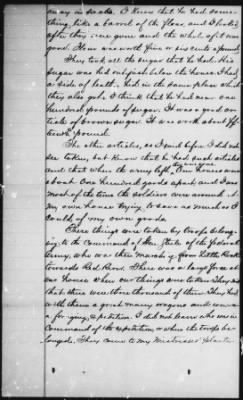 away in sacks. I know that he had some-
thing like a barrel of the flour, and I looked
after they were gone and the whole of it was
gone. Flour was worth five or six cents a pound.
They took all the sugar that he had. His
sugar was hid out just below the house. I had
a side of leather hid in the same place which
they also got. I think that he had near one
hundred pounds of sugar. It was a good ar-
ticle of brown sugar. It was worth about fif-
teen ¢ pound.
The other articles, as I said before I did not
see taken, but know that he had such articles
and that when the army left, they were gone. Our houses were
about One hundred yards apart, and I was
most of the time the soldiers were around, at
my own house trying to save as much as I
could of my own goods.
These things were taken by troops belong-
ing to the Command of Gen. Steele of the federal
Army, who was then marching from Little Rock
towards Red River. There was a large force at
our house when our things were taken. They said
that there were three thousand of them. They had
with them a great many wagons and was on
a foraging expedition. I did not learn who was in
Command of the expedition, or where the troops be-
longed. They came to my Mistress's Planta-